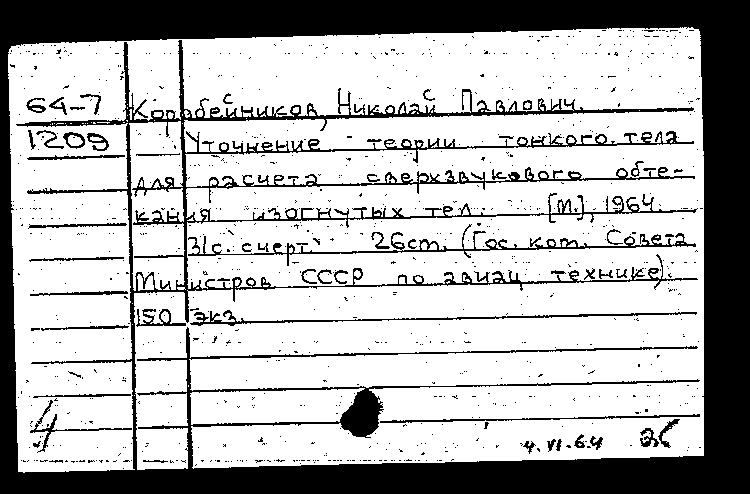 64-7 Коробейников, Николай Павлович.
1209 Уточнение теории тонкого тела
для расчета сверхзвукового обте-
кания изогнутых тел. [М.], 1964.
31с. счерт. 26ст. (Гос. ком. Совета
Министров СССР по авиац технике).
150 экз.
4
4.VI.64